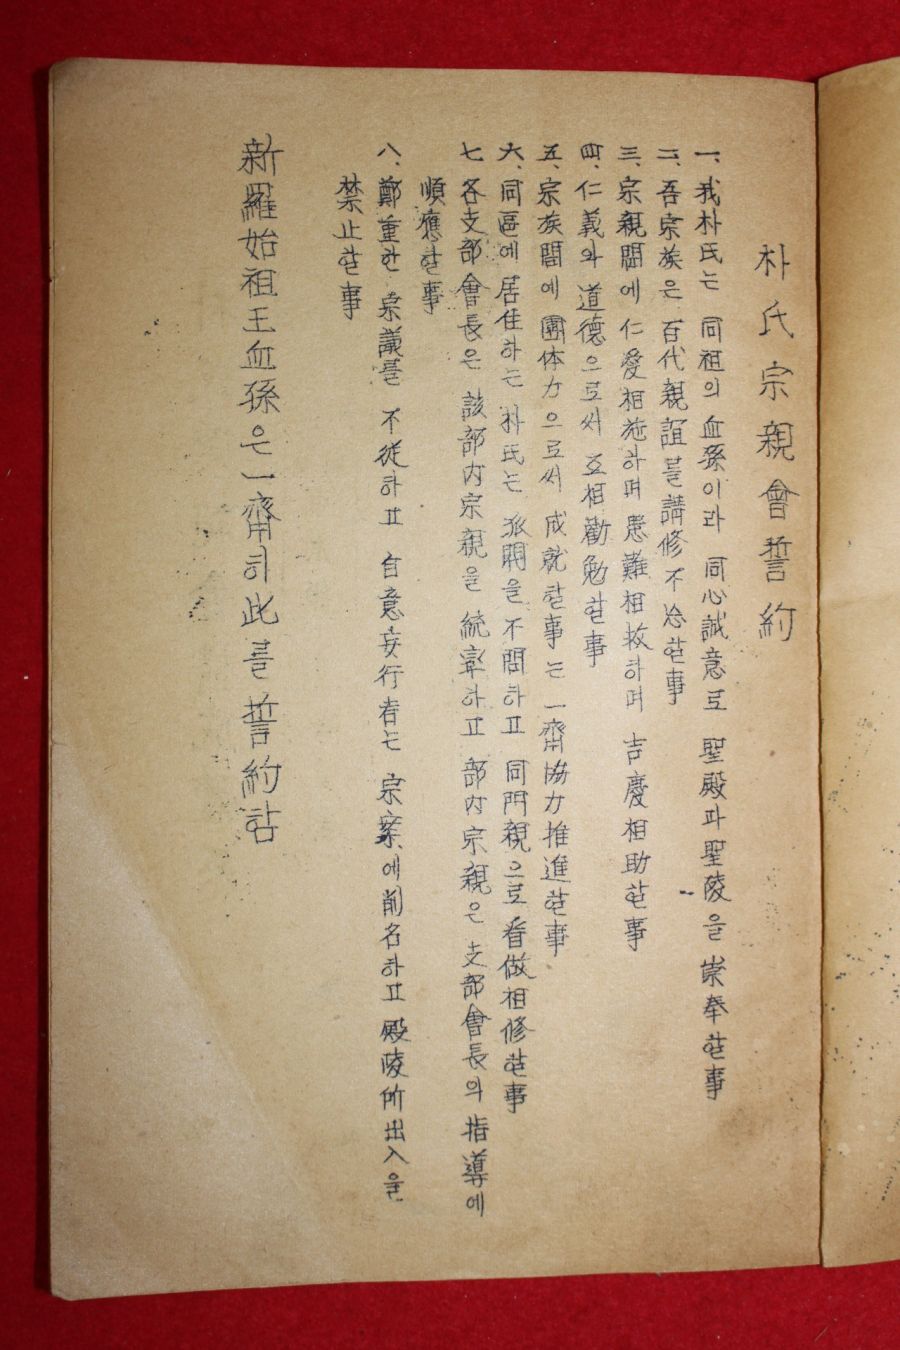 朴氏宗親會誓約
一、我朴氏는 同祖의 血孫이라 同心誠意로 聖殿과 聖陵을 崇奉할事
二、吾宗族은 百代親誼를 講修不怠할事
三、宗親間에 仁愛相施하며 患難相救하며 吉慶相助할事
四、仁義와 道德으로써 互相勸勉할事
五、宗族間에 團体力으로써 成就할事는 一齊協力推進할事
六、同區에 居住하는 朴氏는 派閥을 不問하고 同門親으로 看做相修할事
七、各支部會長은 該部內宗親을 統率하고 部內宗親은 支部會長의 指導에
順應할事
八、鄭重한 宗議를 不從하고 自意妄行者는 宗案에 削名하고 殿陵所出入을
禁止할事
新羅始祖王血孫은 一齊히 此를 誓約함